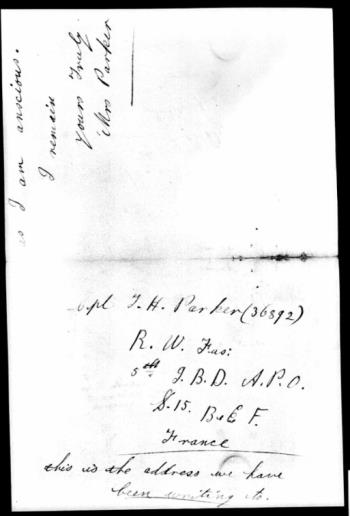 as I am anscious.
I remain
Yours Truly
Mrs Parker
Cpl T. H. Parker (36892)
R. W. Fus:
5th I.B.D. A.P.O.
S.15. B.E F.
France
this is the address we have
been writing to.